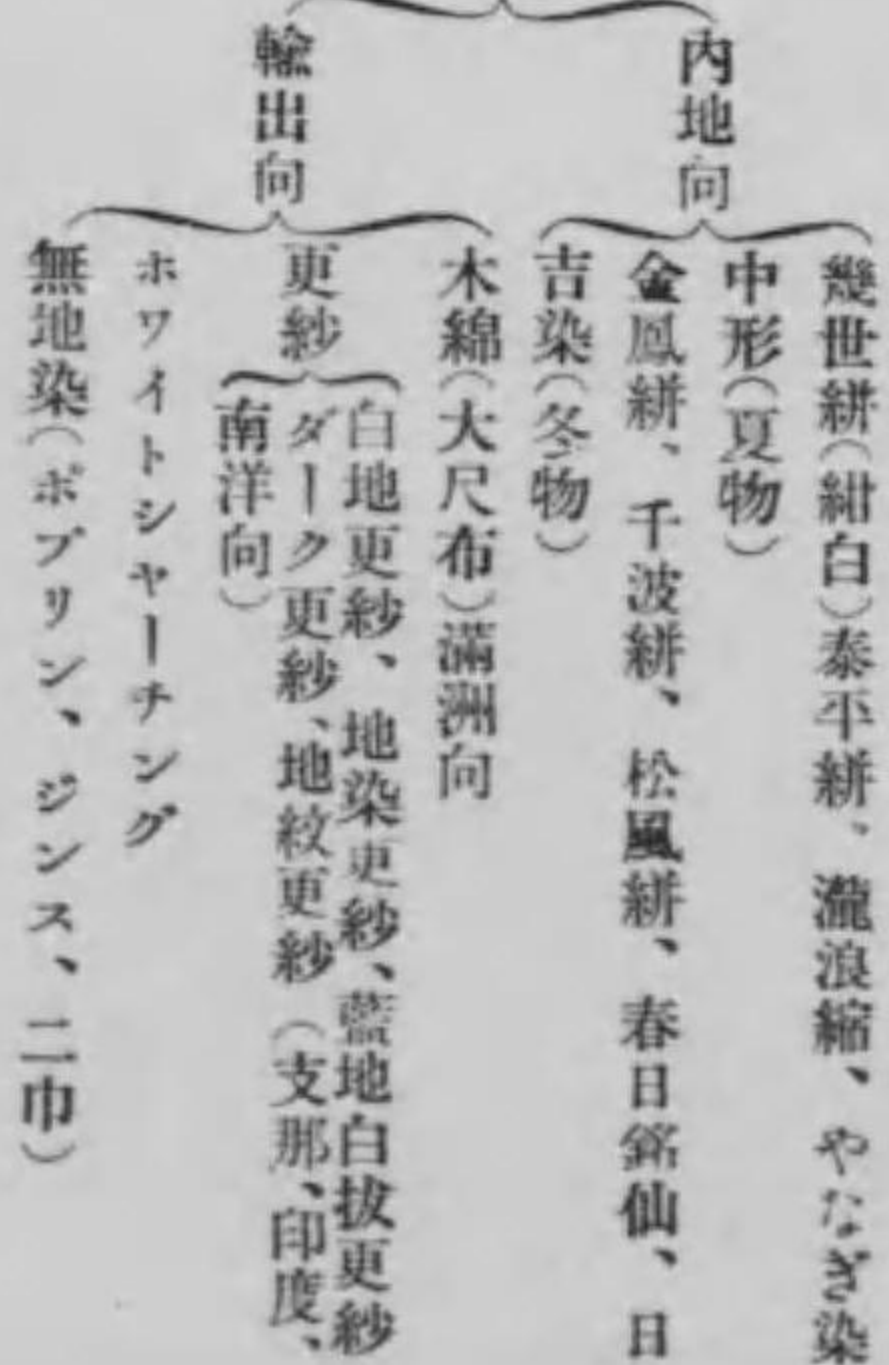 內地向
幾世絣(紺白)泰平絣、瀧浪縮、やなぎ染
中形(夏物)
金鳳絣、千波絣、松風絣、春日銘仙、日
吉染(冬物)
輸出向
木綿(大尺布)滿洲向
更紗
白地更紗、地染更紗、藍地白拔更紗
ダーク更紗、地紋更紗(支那、印度、
南洋向)
ホワイトシャーチング
無地染(ポプリン、ジンス、二巾)